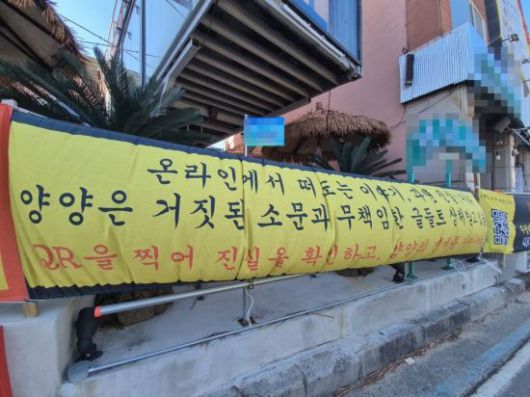 온라인에서 떠도는 이야기,
양양은 거짓된 소문과 무책임한 글들로
QR을 찍어 진실을 확인하고, 양양의